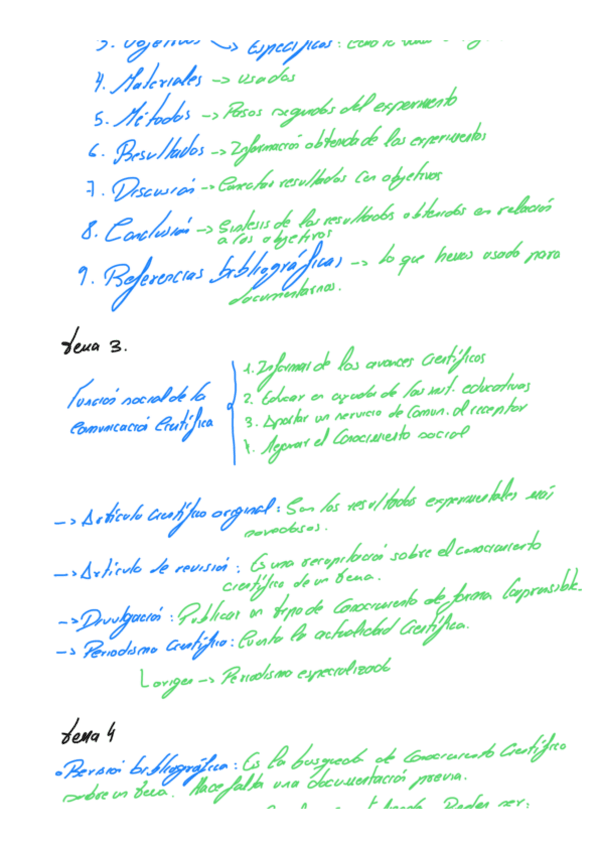 3. Objetivos -> Específicos:
4. Materiales -> usados
5. Métodos -> Pasos seguidos del experimento
6. Resultados -> Información obtenida de los experimentos
7. Discusión -> Conectar resultados con objetivos
8. Conclusión -> Síntesis de los resultados obtenidos en relación
a los objetivos
9. Referencias bibliográficas -> lo que hemos usado para
documentarnos.
tema 3.
Función social de la
Comunicación Científica
1. Informar de los avances Científicos
2. Educar en ayuda de las inst. educativas
3. Aportar un servicio de Comun. al receptor
4. Mejorar el Conocimiento social
-> Artículo Científico original: Son los resultados experimentales más
novedosos.
-> Artículo de revisión: Es una recopilación sobre el conocimiento
científico de un tema.
-> Divulgación: Publicar un tipo de Conocimiento de forma Comprensible.
-> Periodismo Científico: Cuenta la actualidad Científica.
-> Periodismo especializado
tema 4
Revisión bibliográfica: Es la busqueda de Conocimiento Científico
sobre un tema. Hace falta una documentación previa.
Pueden ser: